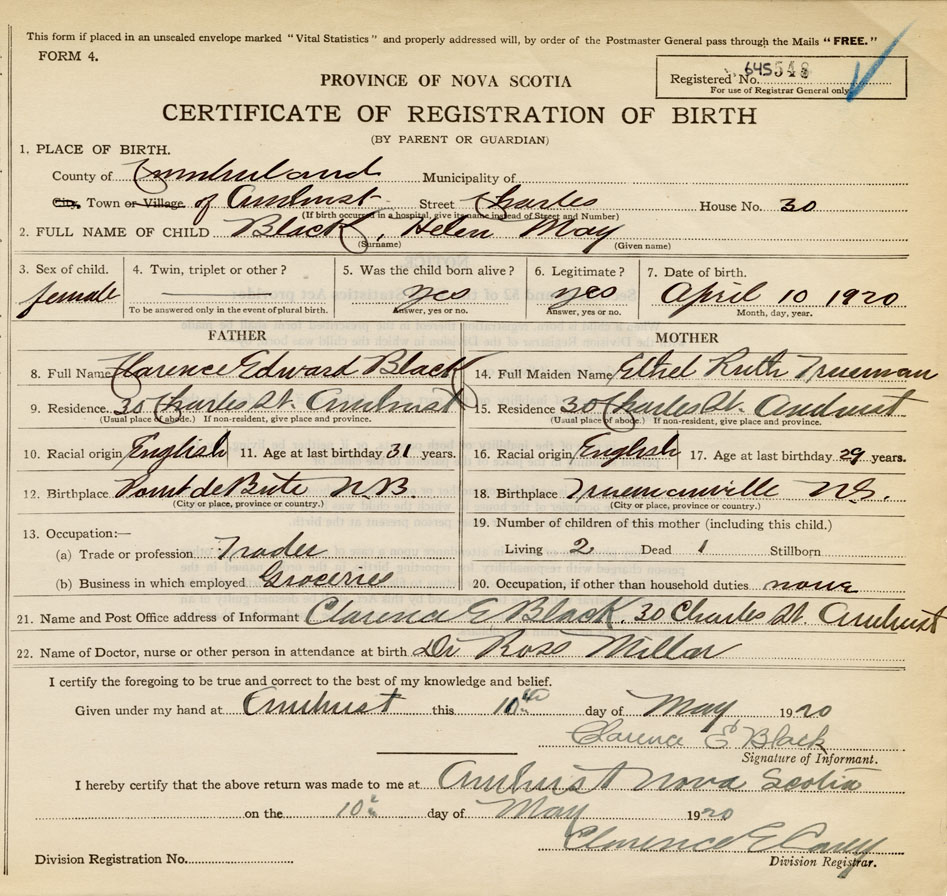 This form if placed in an unsealed envelope marked "Vital Statistics" and properly addressed will, by order of the Postmaster General pass through the Mails "FREE."
FORM 4.
Registered No. 645548
For use of Registrar General only
PROVINCE OF NOVA SCOTIA
CERTIFICATE OF REGISTRATION OF BIRTH
(BY PARENT OR GUARDIAN)
1. PLACE OF BIRTH.
County of Cumberland Municipality of
City, Town or Village of Amherst Street Charles House No. 30
(If birth occurred in a hospital, give its name instead of Street and Number)
2. FULL NAME OF CHILD Black, Helen May
(Surname) (Given name)
3. Sex of child. 4. Twin, triplet or other? 5. Was the child born alive? 6. Legitimate? 7. Date of birth.
female yes yes April 10 1920
To be answered only in the event of plural birth. Answer, yes or no. Answer, yes or no. Month, day, year.
FATHER MOTHER
8. Full Name Clarence Edward Black 14. Full Maiden Name Ethel Ruth Trueman
9. Residence 30 Charles St. Amherst 15. Residence 30 Charles St. Amherst
(Usual place of abode.) If non-resident, give place and province. (Usual place of abode.) If non-resident, give place and province.
10. Racial origin English 11. Age at last birthday 31 years. 16. Racial origin English 17. Age at last birthday 29 years.
12. Birthplace Point de Bute N.B. 18. Birthplace Truemanville N.S.
(City or place, province or country.) (City or place, province or country.)
13. Occupation:— 19. Number of children of this mother (including this child.)
(a) Trade or profession Trader Living 2 Dead 1 Stillborn
(b) Business in which employed Groceries 20. Occupation, if other than household duties none
21. Name and Post Office address of Informant Clarence E Black. 30 Charles St. Amherst
22. Name of Doctor, nurse or other person in attendance at birth Dr Ross Millar
I certify the foregoing to be true and correct to the best of my knowledge and belief.
Given under my hand at Amherst this 10th day of May 1920
Clarence E Black
Signature of Informant.
I hereby certify that the above return was made to me at Amherst Nova Scotia
on the 10th day of May 1920
Clarence E
Division Registrar.
Division Registration No.